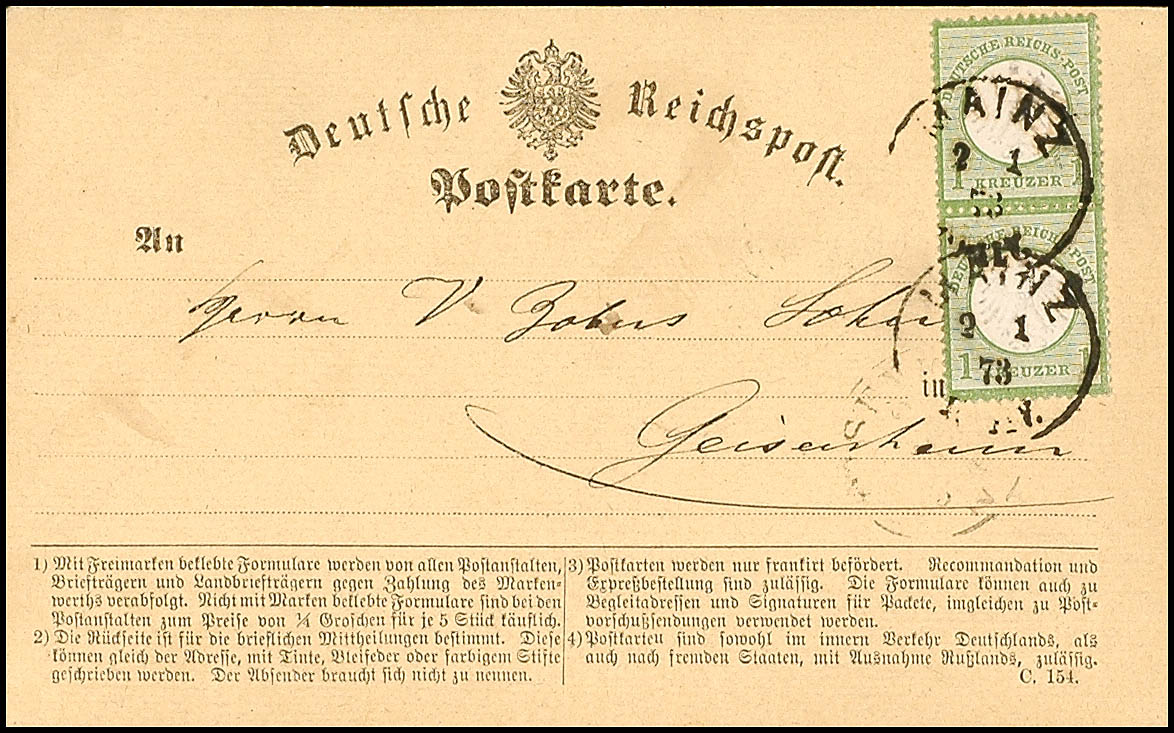 Deutsche Reichspost.
Postkarte.
An
Herrn V Zobus Sohn
in
Geisenheim
DEUTSCHE REICHS-POST
1 KREUZER 1
DEUTSCHE REICHS-POST
1 KREUZER 1
MAINZ
2 1
73
MAINZ
2 1
73
1) Mit Freimarken beklebte Formulare werden von allen Postanstalten,
Briefträgern und Landbriefträgern gegen Zahlung des Marken-
werths verabfolgt. Nicht mit Marken beklebte Formulare sind bei den
Postanstalten zum Preise von ¼ Groschen für je 5 Stück käuflich.
2) Die Rückseite ist für die brieflichen Mittheilungen bestimmt. Diese
können gleich der Adresse, mit Tinte, Bleifeder oder farbigem Stifte
geschrieben werden. Der Absender braucht sich nicht zu nennen.
3) Postkarten werden nur frankirt befördert. Recommandation und
Expreßbestellung sind zulässig. Die Formulare können auch zu
Begleitadressen und Signaturen für Packete, imgleichen zu Post-
vorschußsendungen verwendet werden.
4) Postkarten sind sowohl im innern Verkehr Deutschlands, als
auch nach fremden Staaten, mit Ausnahme Rußlands, zulässig.
C. 154.